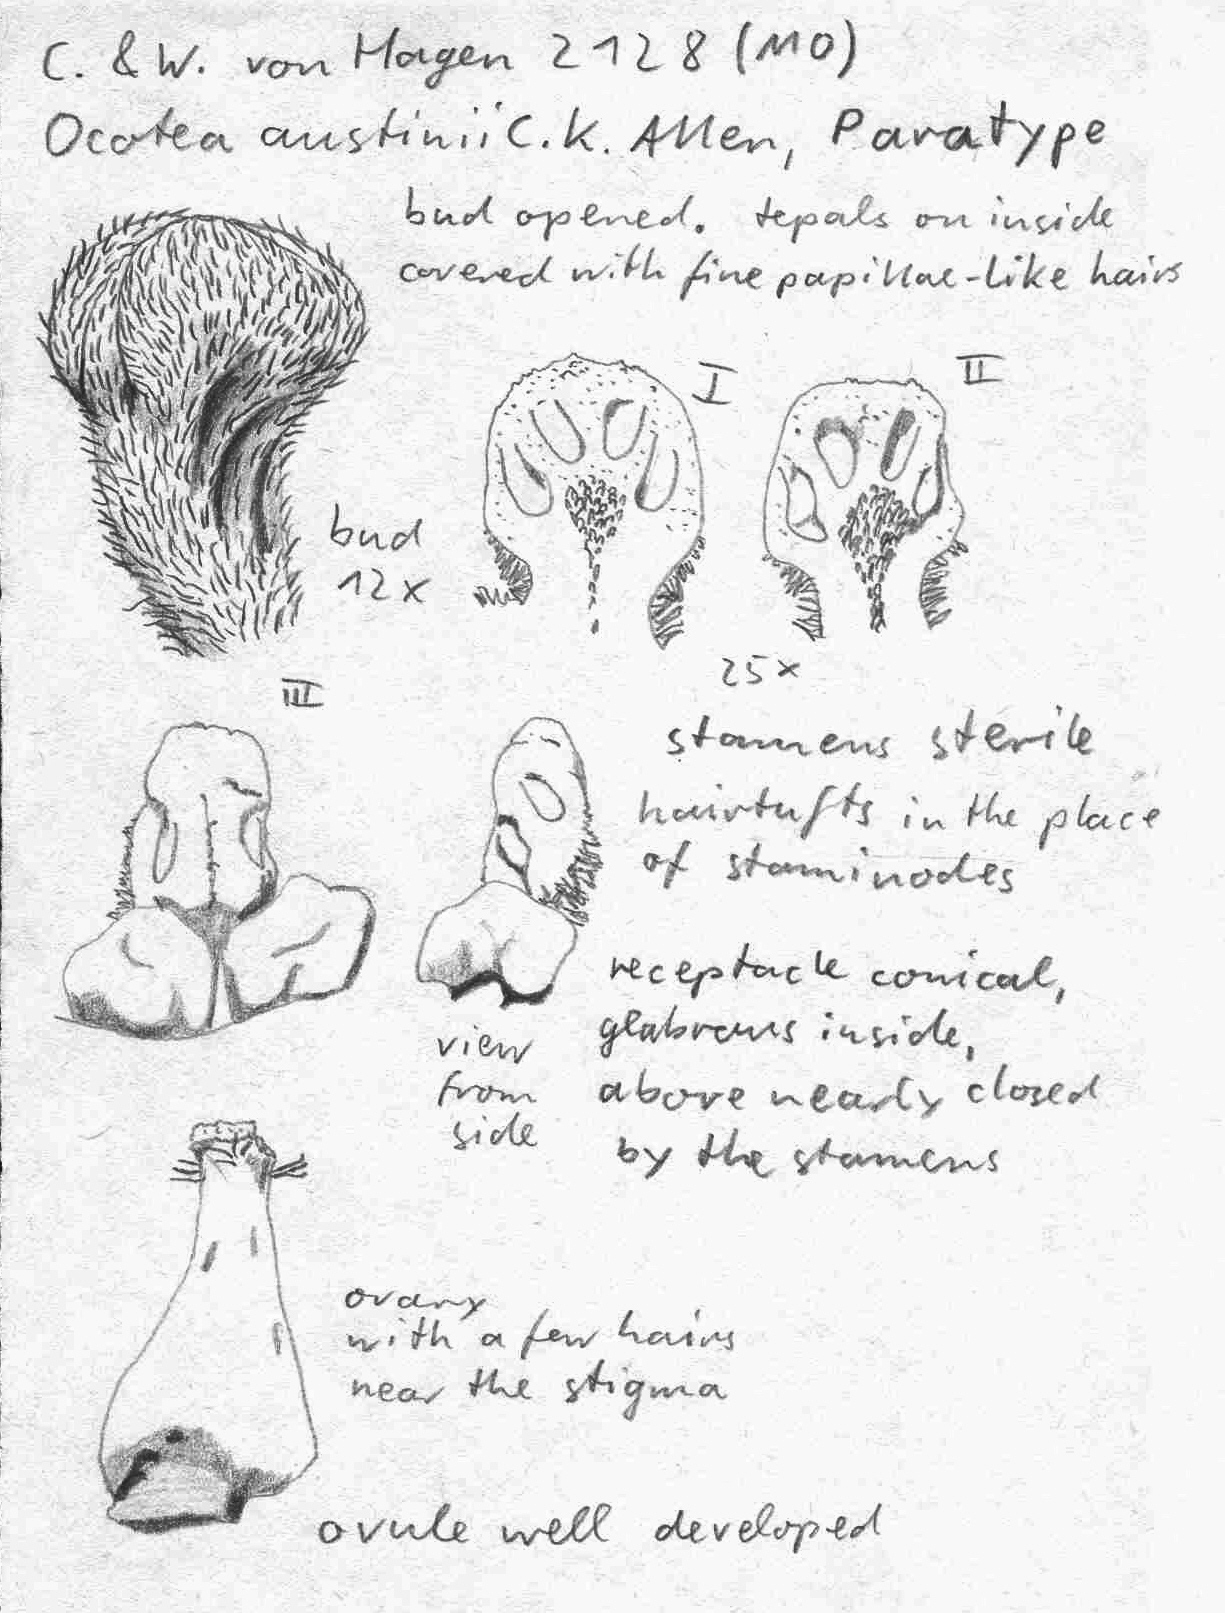 C. & W. von Hagen 2128 (MO)
Ocotea austinii C.K. Allen, Paratype
bud opened. tepals on inside
covered with fine papillae-like hairs
I
II
bud
12x
25x
III
stamens sterile
hairtufts in the place
of staminodes
receptacle conical,
glabrous inside,
above nearly closed
by the stamens
view
from
side
ovary
with a few hairs
near the stigma
ovule well developed